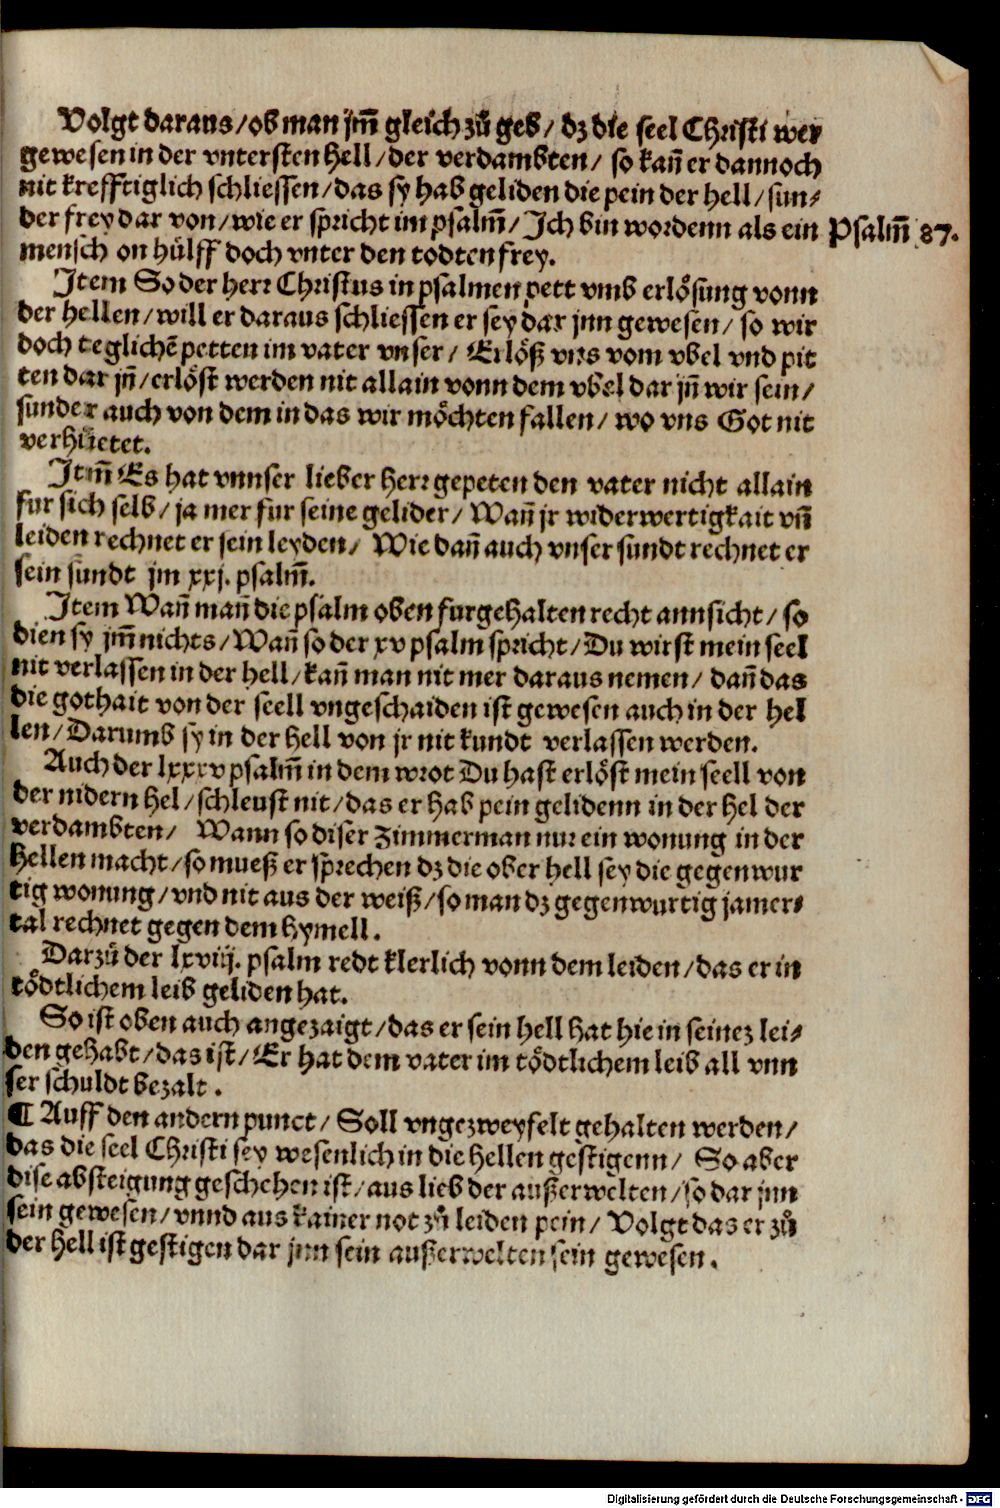 Volgt daraus/ob man jm̃ gleich zů geb/ dz die seel Christi wer
gewesen in der vntersten hell/der verdambten/ so kañ er dannoch
nit krefftiglich schliessen/das sy hab geliden die pein der hell/sun⸗
der frey dar von/wie er spricht im psalm̃/Ich bin wordenn als ein Psalm̃ 87.
mensch on hülff doch vnter den todten frey.
Item So der herr Christus in psalmen pett vmb erlösung vonn
der hellen/will er daraus schliessen er sey dar jnn gewesen/ so wir
doch teglichẽ petten im vater vnser/ Erlöß vns vom vbel vnd pit
ten dar jñ/erlöst werden nit allain vonn dem vbel dar jñ wir sein/
sunder auch von dem in das wir möchten fallen/ wo vns Got nit
verhüetet.
Itm̃ Es hat vnnser lieber herr gepeten den vater nicht allain
fur sich selb/ja mer fur seine gelider/ Wañ jr widerwertigkait vñ
leiden rechnet er sein leyden/ Wie dañ auch vnser sundt rechnet er
sein sundt jm xxj. psalm̃.
Item Wañ mañ die psalm oben furgehalten recht annsicht/ so
dien sy jm̃ nichts/Wañ so der xv psalm spricht/Du wirst mein seel
nit verlassen in der hell/kañ man nit mer daraus nemen/ dañ das
die gothait von der seell vngeschaiden ist gewesen auch in der hel
len/Darumb sy in der hell von jr nit kundt verlassen werden.
Auch der lxxxv psalm̃ in dem wrot Du hast erlöst mein seell von
der nidern hel/schleust nit/das er hab pein gelidenn in der hel der
verdambten/ Wann so diser Zimmerman nur ein wonung in der
hellen macht/so mueß er sprechen dz die ober hell sey die gegenwur
tig wonung/vnd nit aus der weiß/so man dz gegenwurtig jamer⸗
tal rechnet gegen dem hymell.
Darzů der lxviij. psalm redt klerlich vonn dem leiden/das er in
tödtlichem leib geliden hat.
So ist oben auch angezaigt/das er sein hell hat hie in seinez lei⸗
den gehabt/das ist/Er hat dem vater im tödtlichem leib all vnn
ser schuldt bezalt.
¶ Auff den andern punct/ Soll vngezweyfelt gehalten werden/
das die seel Christi sey wesenlich in die hellen gestigenn/ So aber
dise absteigung geschehen ist/aus lieb der außerwelten/so dar jnn
sein gewesen/vnnd aus kainer not zů leiden pein/ Volgt das er zů
der hell ist gestigen dar jnn sein außerwelten sein gewesen.
Digitalisierung gefördert durch die Deutsche Forschungsgemeinschaft - DFG